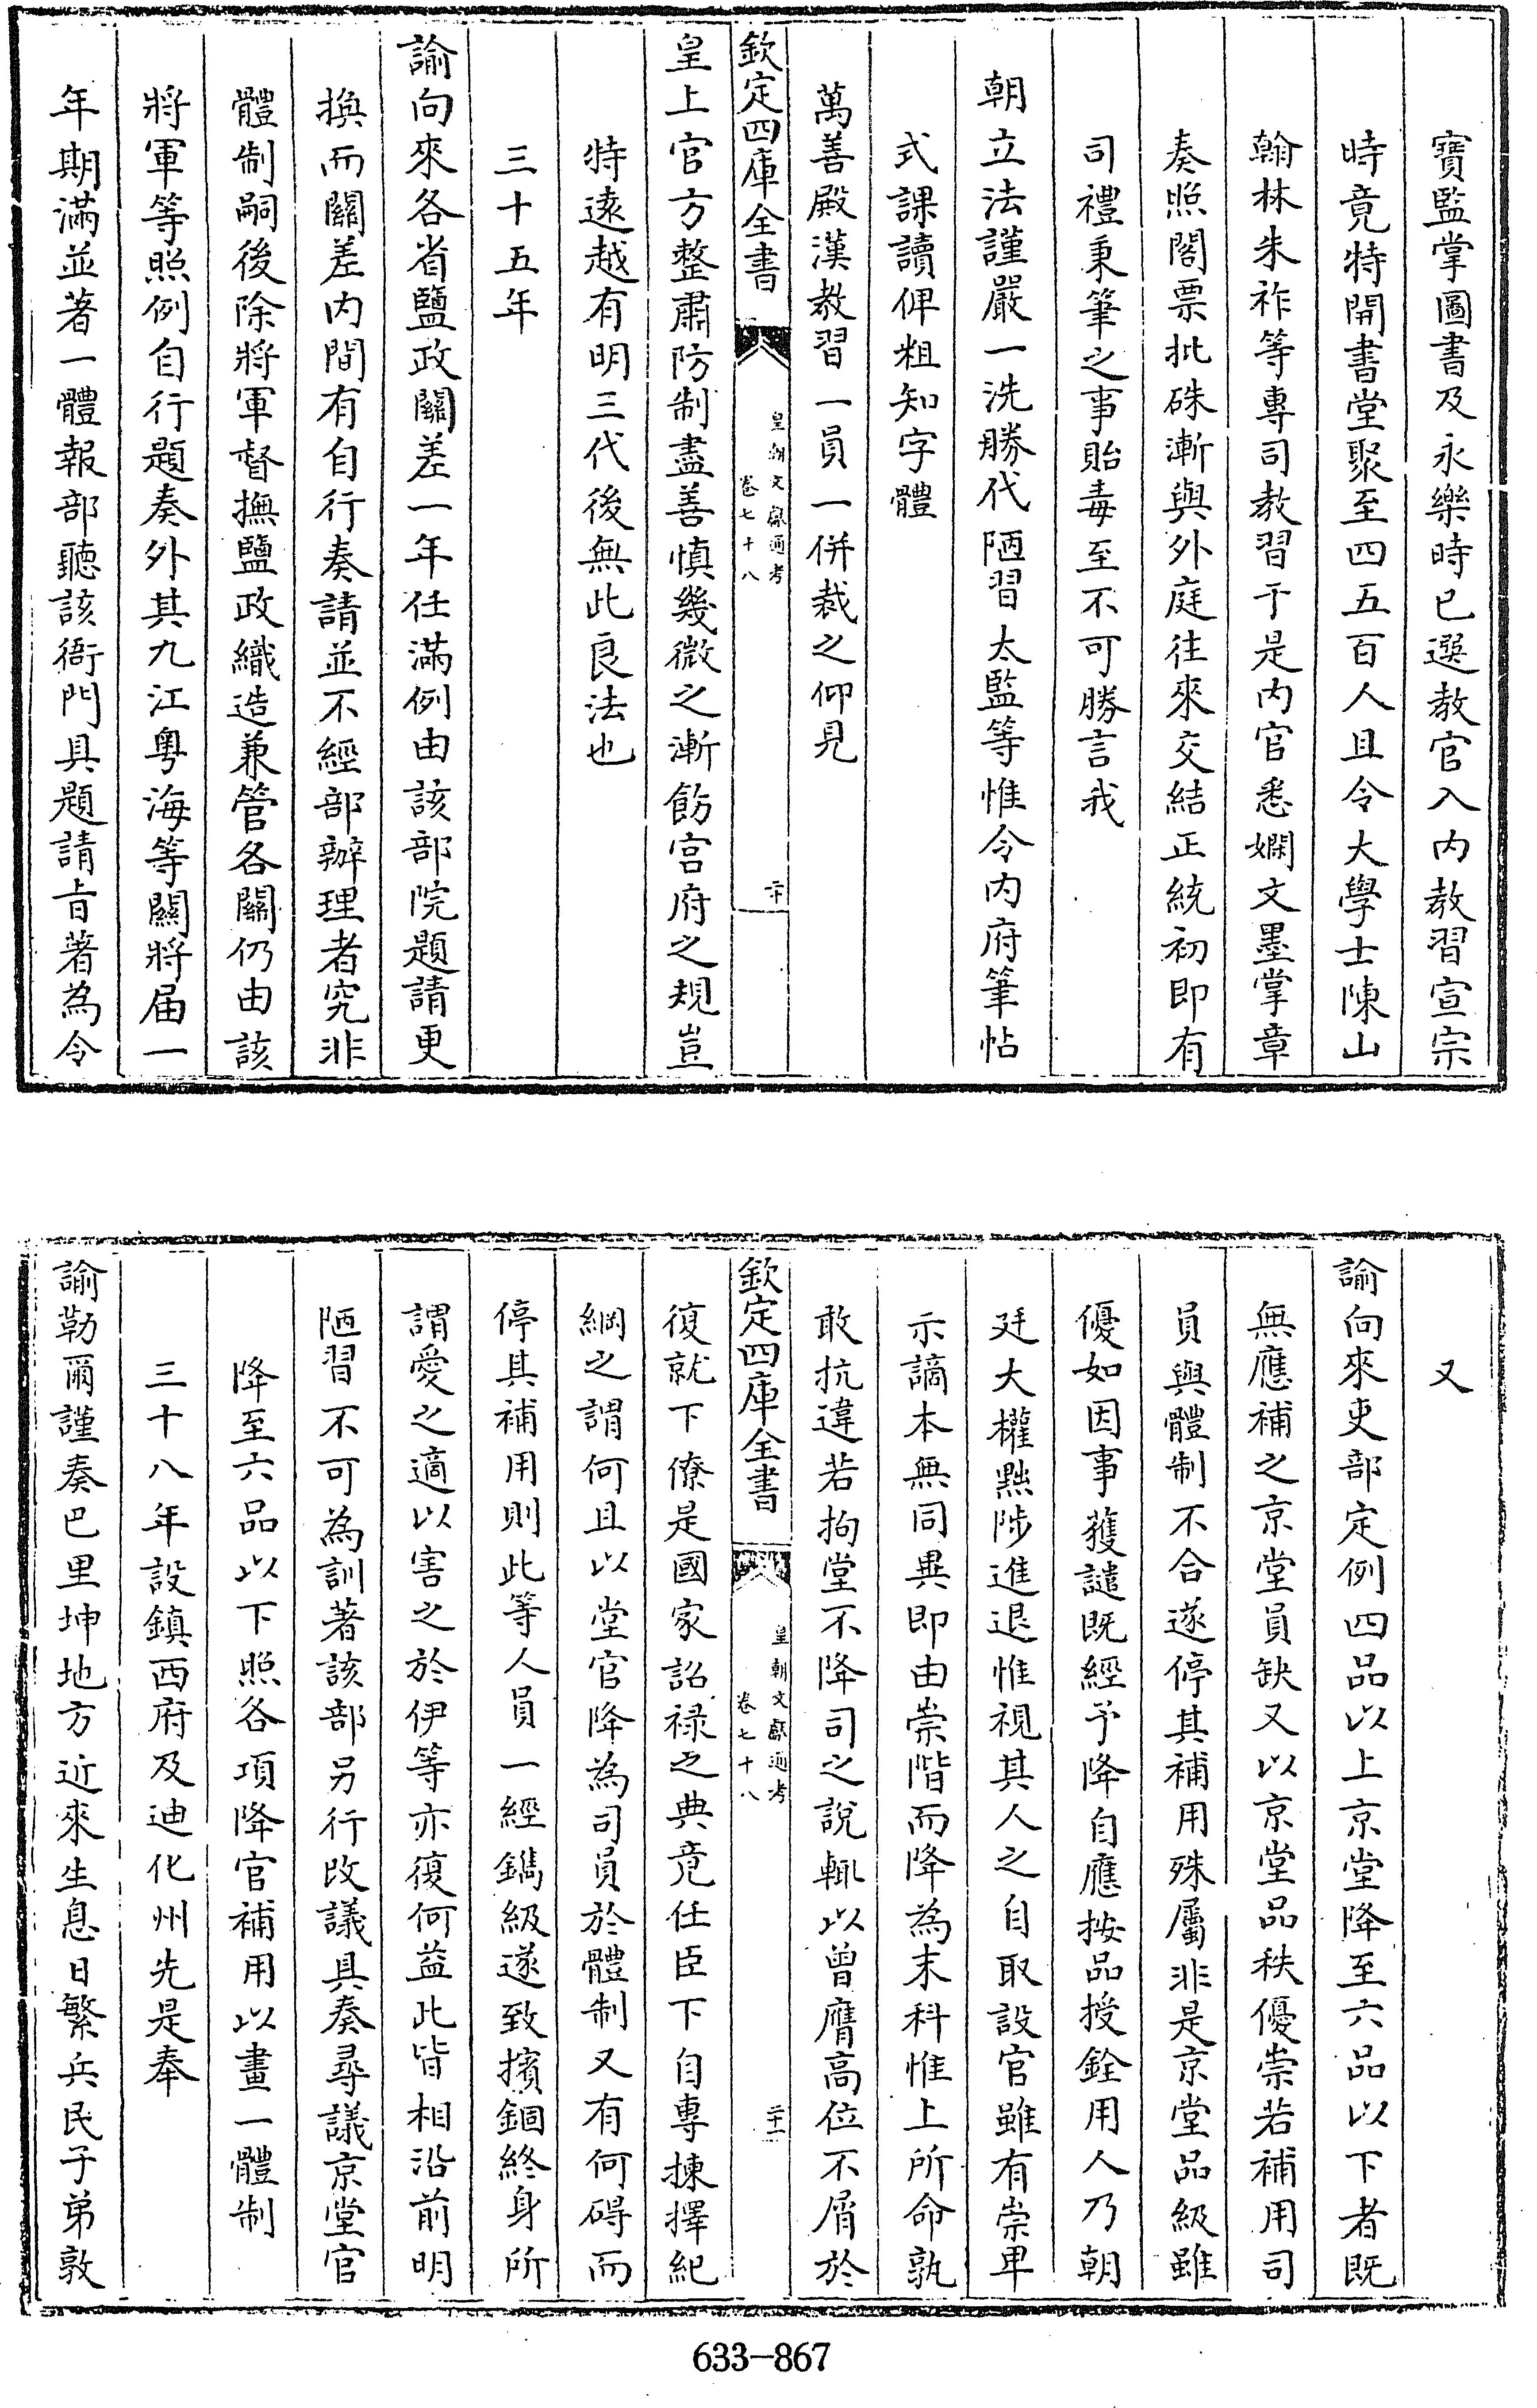 寶監掌圖書及永樂時已選教官入内教習宣宗
時竟特開書堂聚至四五百人且令大學士陳山
翰林朱祚等專司教習于是内官悉嫻文墨掌章
奏照閣票批硃漸與外庭往來交結正統初即有
司禮秉筆之事貽毒至不可勝言我
朝立法謹嚴一洗勝代陋習太監等惟令内府筆帖
式課讀俾粗知字體
萬善殿漢教習一員一併裁之仰見
欽定四庫全書
皇朝文獻通考
卷七十八
二十
皇上官方整肅防制盡善慎幾微之漸飭宫府之規豈
特遠越有明三代後無此良法也
三十五年
諭向來各省鹽政關差一年任滿例由該部院題請更
換而關差内間有自行奏請並不經部辦理者究非
體制嗣後除將軍督撫鹽政織造兼管各關仍由該
將軍等照例自行題奏外其九江粤海等關將届一
年期滿並著一體報部聽該衙門具題請㫖著為令
又
諭向來吏部定例四品以上京堂降至六品以下者既
無應補之京堂員缺又以京堂品秩優崇若補用司
員與體制不合遂停其補用殊屬非是京堂品級雖
優如因事獲譴既經予降自應按品授銓用人乃朝
廷大權黜陟進退惟視其人之自取設官雖有崇卑
示謫本無同異即由崇階而降為末科惟上所命孰
敢抗違若拘堂不降司之說輒以曾膺高位不屑於
欽定四庫全書
皇朝文獻通考
卷七十八
二十一
復就下僚是國家詔禄之典竟任臣下自專揀擇紀
綱之謂何且以堂官降為司員於體制又有何碍而
停其補用則此等人員一經鐫級遂致擯錮終身所
謂愛之適以害之於伊等亦復何益此皆相沿前明
陋習不可為訓著該部另行改議具奏尋議京堂官
降至六品以下照各項降官補用以畫一體制
三十八年設鎮西府及迪化州先是奉
諭勒爾謹奏巴里坤地方近來生息日繁兵民子弟敦
633-867